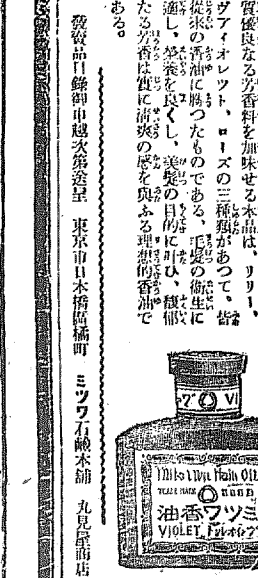 質優良なる芳香料を加味せる本品は、リリー、
ヴアイオレツト、ローズの三種類があつて、皆
從來の香油に勝つたものである、毛髮の衞生に
適し、榮養を良くし、美髮の目的に叶ひ、馥郁
たる芳香は實に淸爽の感を與ふる理想的香油で
ある。
發賣品目錄御申越次第送呈 東京市日本橋區橘町 ミツワ石鹼本舖 丸見屋商店
VI
Hair Oil
TRADE MARK
油香ワツミ
VIOLET